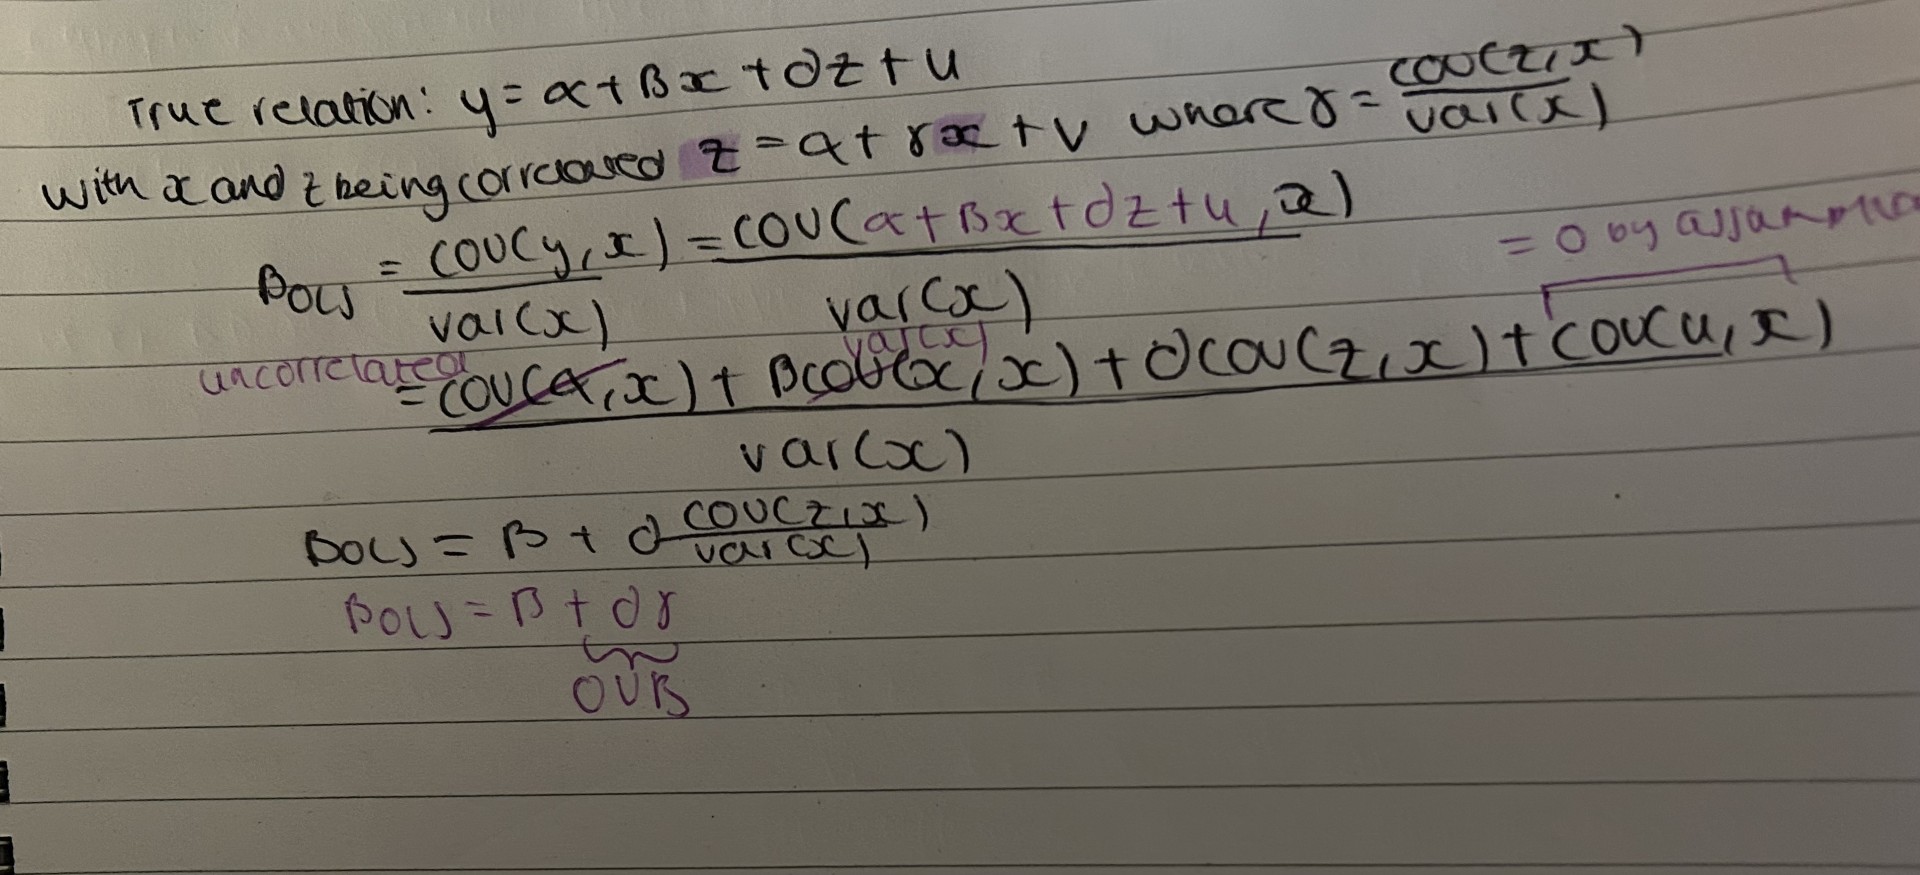 True relation: y = α + βx + ∂z + u
with x and z being correlated z = α + γx + v where γ = cov(z,x) / var(x)
βOLS = cov(y,x) / var(x) = cov(α + βx + ∂z + u, x) / var(x)
= 0 by assumption
uncorrelated var(x)
= cov(α,x) + βcov(x,x) + ∂cov(z,x) + cov(u,x)
var(x)
βOLS = β + ∂ cov(z,x) / var(x)
βOLS = β + ∂γ
OVB